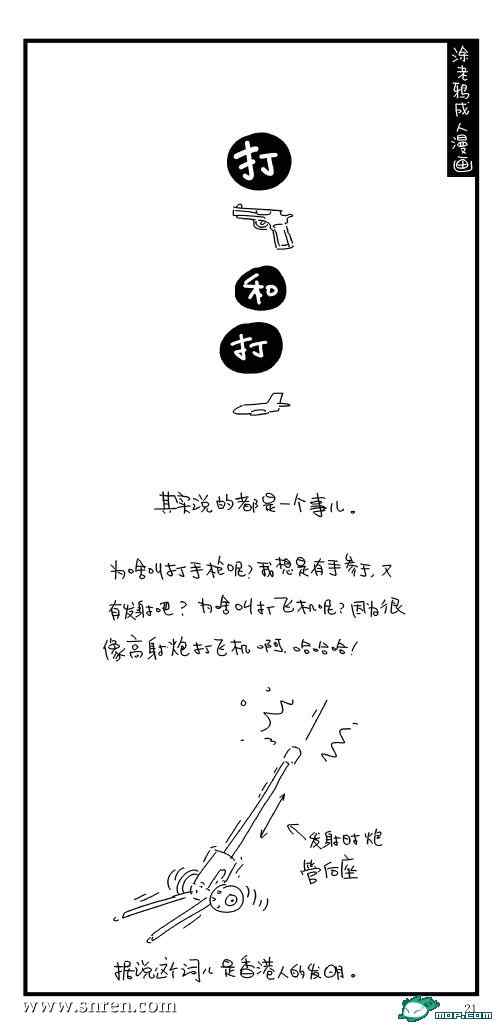 涂老鸦成人漫画
打
和
打
其实说的都是一个事儿。
为啥叫打手枪呢?我想是有手参于,又
有发射吧?为啥叫打飞机呢?因为很
像高射炮打飞机啊,哈哈哈!
发射时炮
管后座
据说这个词儿是香港人的发明。
www.snren.com
21
mop.com